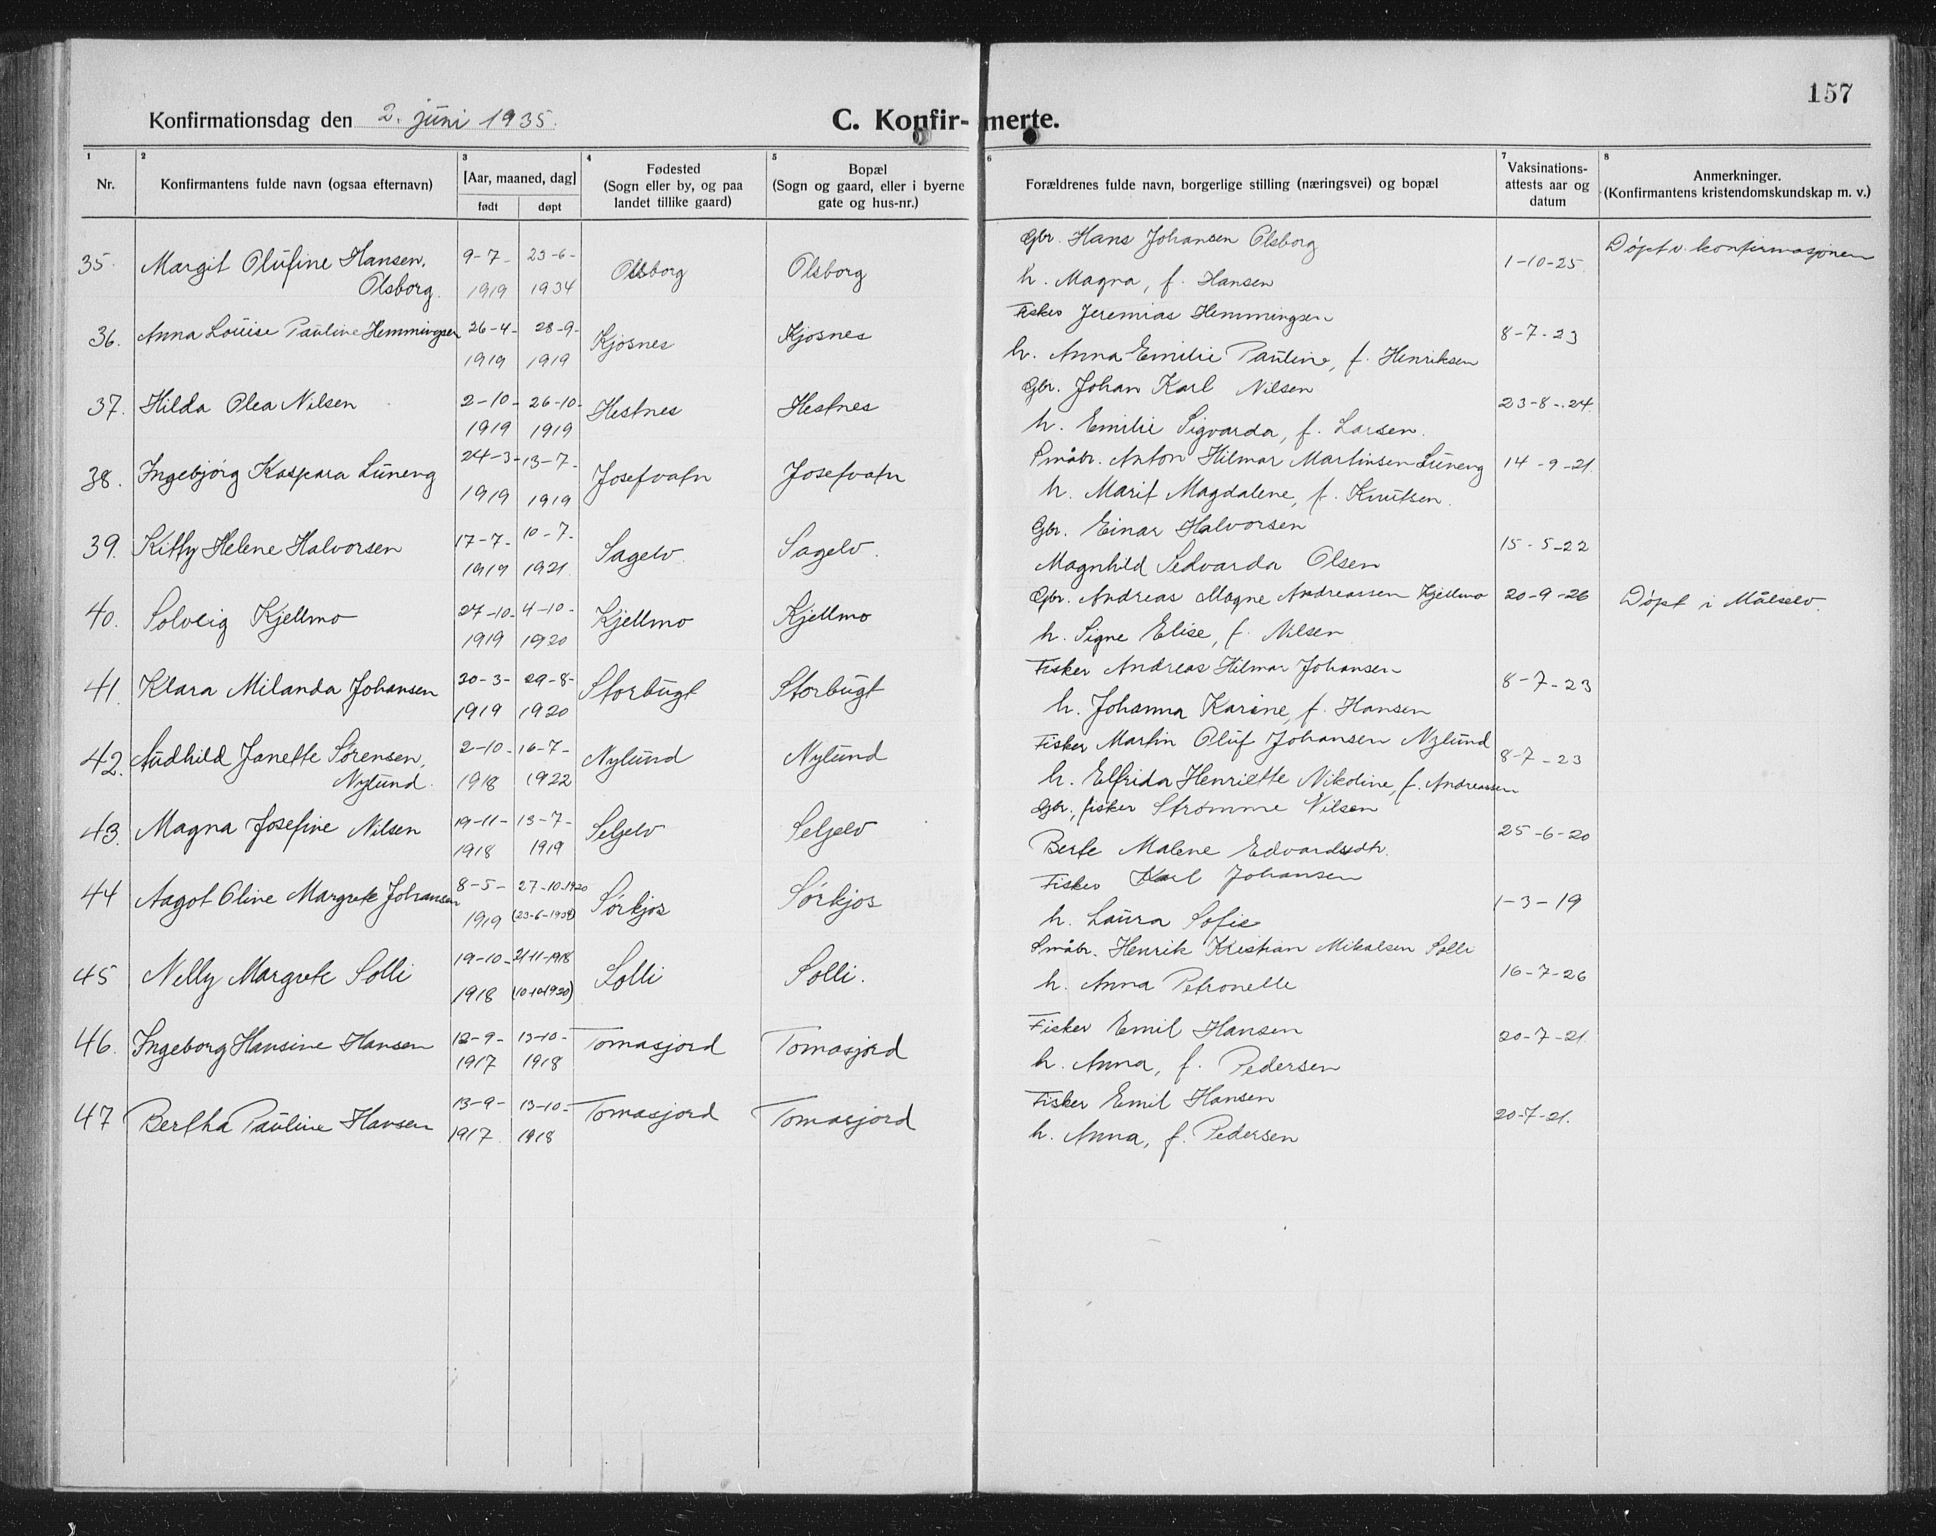 157
Konfirmationsdag den 2. juni 1935.
C. Konfir- merte.
1 2 3 4 5 6 7 8
Nr.
Konfirmantens fulde navn (ogsaa efternavn)
[Aar, maaned, dag]
født døpt
Fødested
(Sogn eller by, og paa
landet tillike gaard)
Bopæl
(Sogn og gaard, eller i byerne
gate og hus-nr.)
Forældrenes fulde navn, borgerlige stilling (næringsvei) og bopæl
Vaksinations-
attests aar og
datum
Anmerkninger.
(Konfirmantens kristendomskundskap m. v.)
35. Margit Olufine Hansen, 9-7- 23-6- Olsborg Olsborg Gbr. Hans Johansen Olsborg 1-10-25. Døpt v. konfirmasjonen
Olsborg. 1919 1934 h. Magna, f. Hansen
36. Anna Louise Pauline Hemmingsen 26-4- 28-9- Kjosnes Kjosnes Fisker Jeremias Hemmingsen 8-7-23
1919 1919 h. Anna Emilie Pauline, f. Henriksen
37. Hilda Olea Nilsen 2-10- 26-10- Hestnes Hestnes Gbr. Johan Karl Nilsen 23-8-24.
1919 1919 h. Emilie Sigvarda, f. Larsen.
38. Ingebjørg Kaspara Luneng 24-3- 13-7- Josefvatn Josefvatn Småbr. Anton Hilmar Martinsen Luneng 14-9-21
1919 1919 h. Marit Magdalene, f. Knutsen.
39. Kitty Helene Halvorsen 17-7- 10-7- Sagelv Sagelv. Gbr. Einar Halvorsen 15-5-22
1919 1921 Magnhild Sedvarda Olsen
40. Solveig Kjellmo 27-10- 4-10- Kjellmo Kjellmo Gbr. Andreas Magne Andreassen Kjellmo 20-9-26 Døpt i Målselv.
1919 1920 h. Signe Elise, f. Nilsen
41. Klara Milanda Johansen 20-3- 29-8- Storbugt Storbugt Fisker Andreas Hilmar Johansen 8-7-23
1919 1920 h. Johanna Karine, f. Hansen
42. Audhild Janette Sørensen, 2-10- 16-7- Nylund Nylund Fisker Martin Oluf Johansen Nylund 8-7-23
Nylund. 1918 1922 h. Elfrida Henriette Nikoline, f. Andreassen
43. Magna Josefine Nilsen 19-11- 13-7- Seljelv Seljelv Gbr., fisker Strømme Nilsen 25-6-20
1918 1919 Berte Malene Edvardsdtr.
44 Aagot Oline Margrete Johansen 8-5- 27-10-1920 Sørkjos Sørkjos Fisker Karl Johansen 1-3-19
1919 (23-6-1934) h. Laura Sofie
45 Nelly Margrete Solli 19-10- 21-11-1918 Solli Solli. Småbr. Henrik Kristian Mikalsen Solli 16-7-26
1918 (10-10-1920) h. Anna Petronelle
46. Ingeborg Hansine Hansen 12-9- 13-10- Tomasjord Tomasjord Fisker Emil Hansen 20-7-21.
1917 1918 h. Anna, f. Pedersen
47 Bertha Pauline Hansen 13-9- 13-10- Tomasjord Tomasjord Fisker Emil Hansen 20-7-21.
1917 1918 h. Anna, f. Pedersen